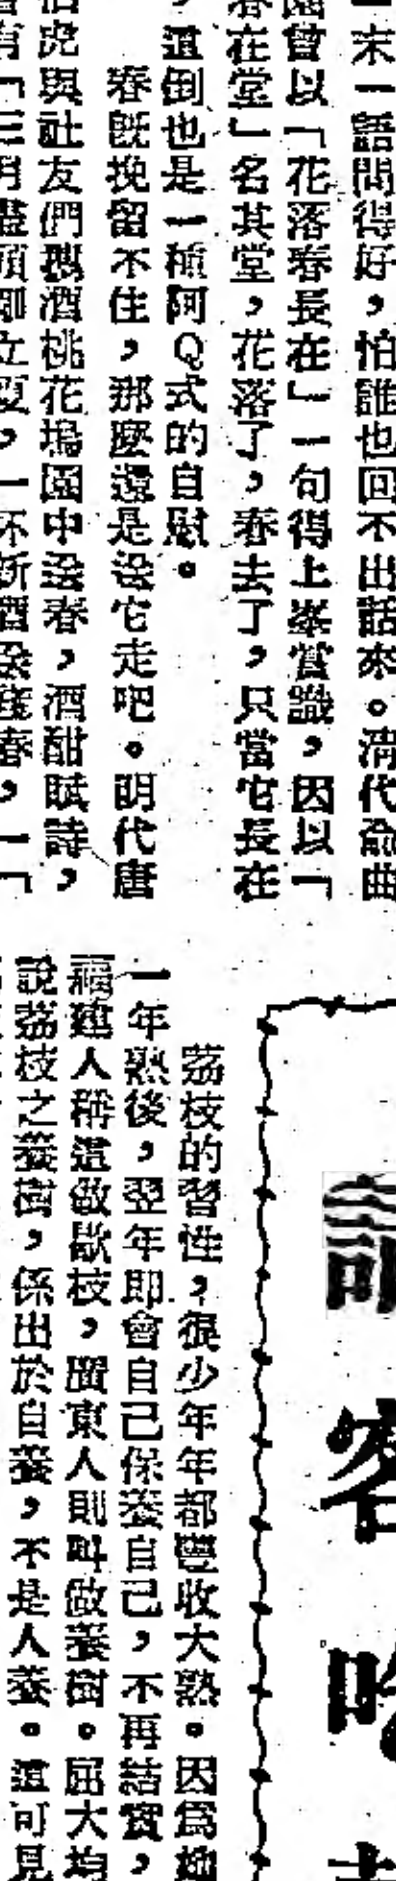 末一語問得好，怕誰也回不出話來。清代俞曲
園曾以「花落春長在」一句得上峯賞識，因以「
春在堂」名其堂，花落了，春去了，只當它長在
，這倒也是一種阿Q式的自慰。
春旣挽留不住，那麼還是送它走吧。明代唐
伯虎與社友們携酒桃花塢園中送春，酒酣賦詩，
有「三月盡頭卽立夏，一杯新酒餞殘春，一「
客吃
荔枝的習性，很少年年都豐收大熟。因爲她
一年熟後，翌年即會自己保養自己，不再結實，
福建人稱這做歇枝，廣東人則叫做養樹。屈大均
說荔枝之養樹，係出於自養，不是人養。這可見